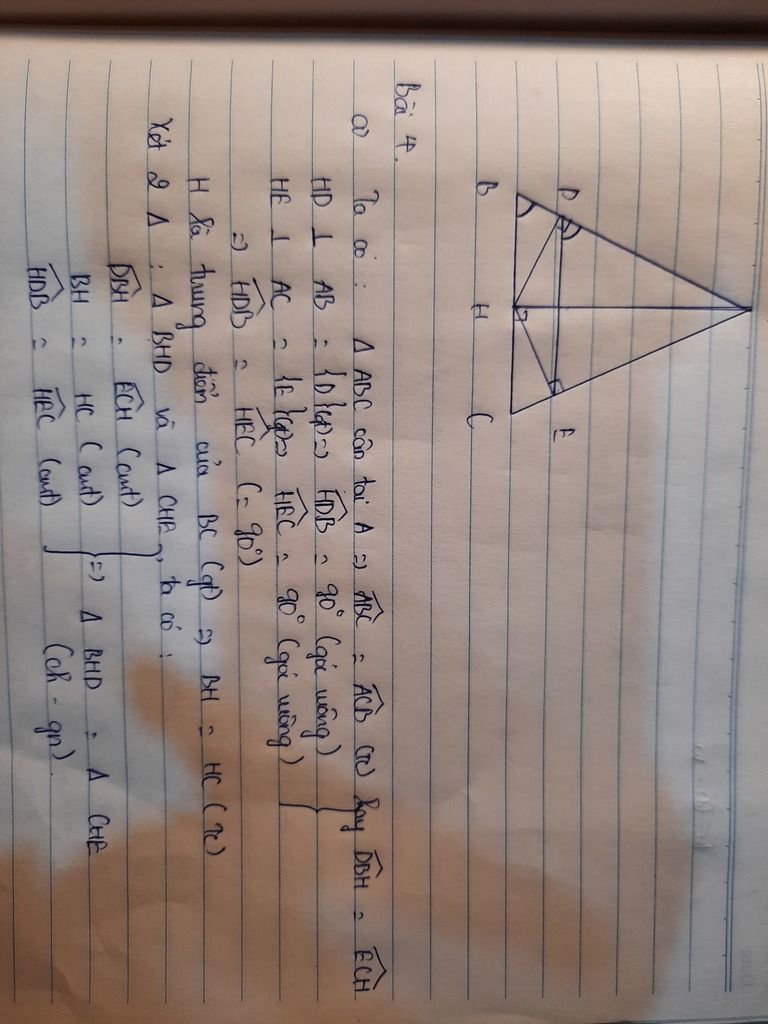 D
E
B
H
C
Bài 4.
a) Ta có : Δ ABC cân tại A => ABC = ACB (tc) hay DBH = ECH
HD ⊥ AB = {D} (gt) => HDB = 90° (góc vuông)
HE ⊥ AC = {E} (gt) => HEC = 90° (góc vuông)
=> HDB = HEC (= 90°)
H là trung điểm của BC (gt) => BH = HC (tc)
Xét 2 Δ : Δ BHD và Δ CHE, ta có :
DBH = ECH (cmt)
BH = HC (cmt) => Δ BHD = Δ CHE
HDB = HEC (cmt) (ch - gn).